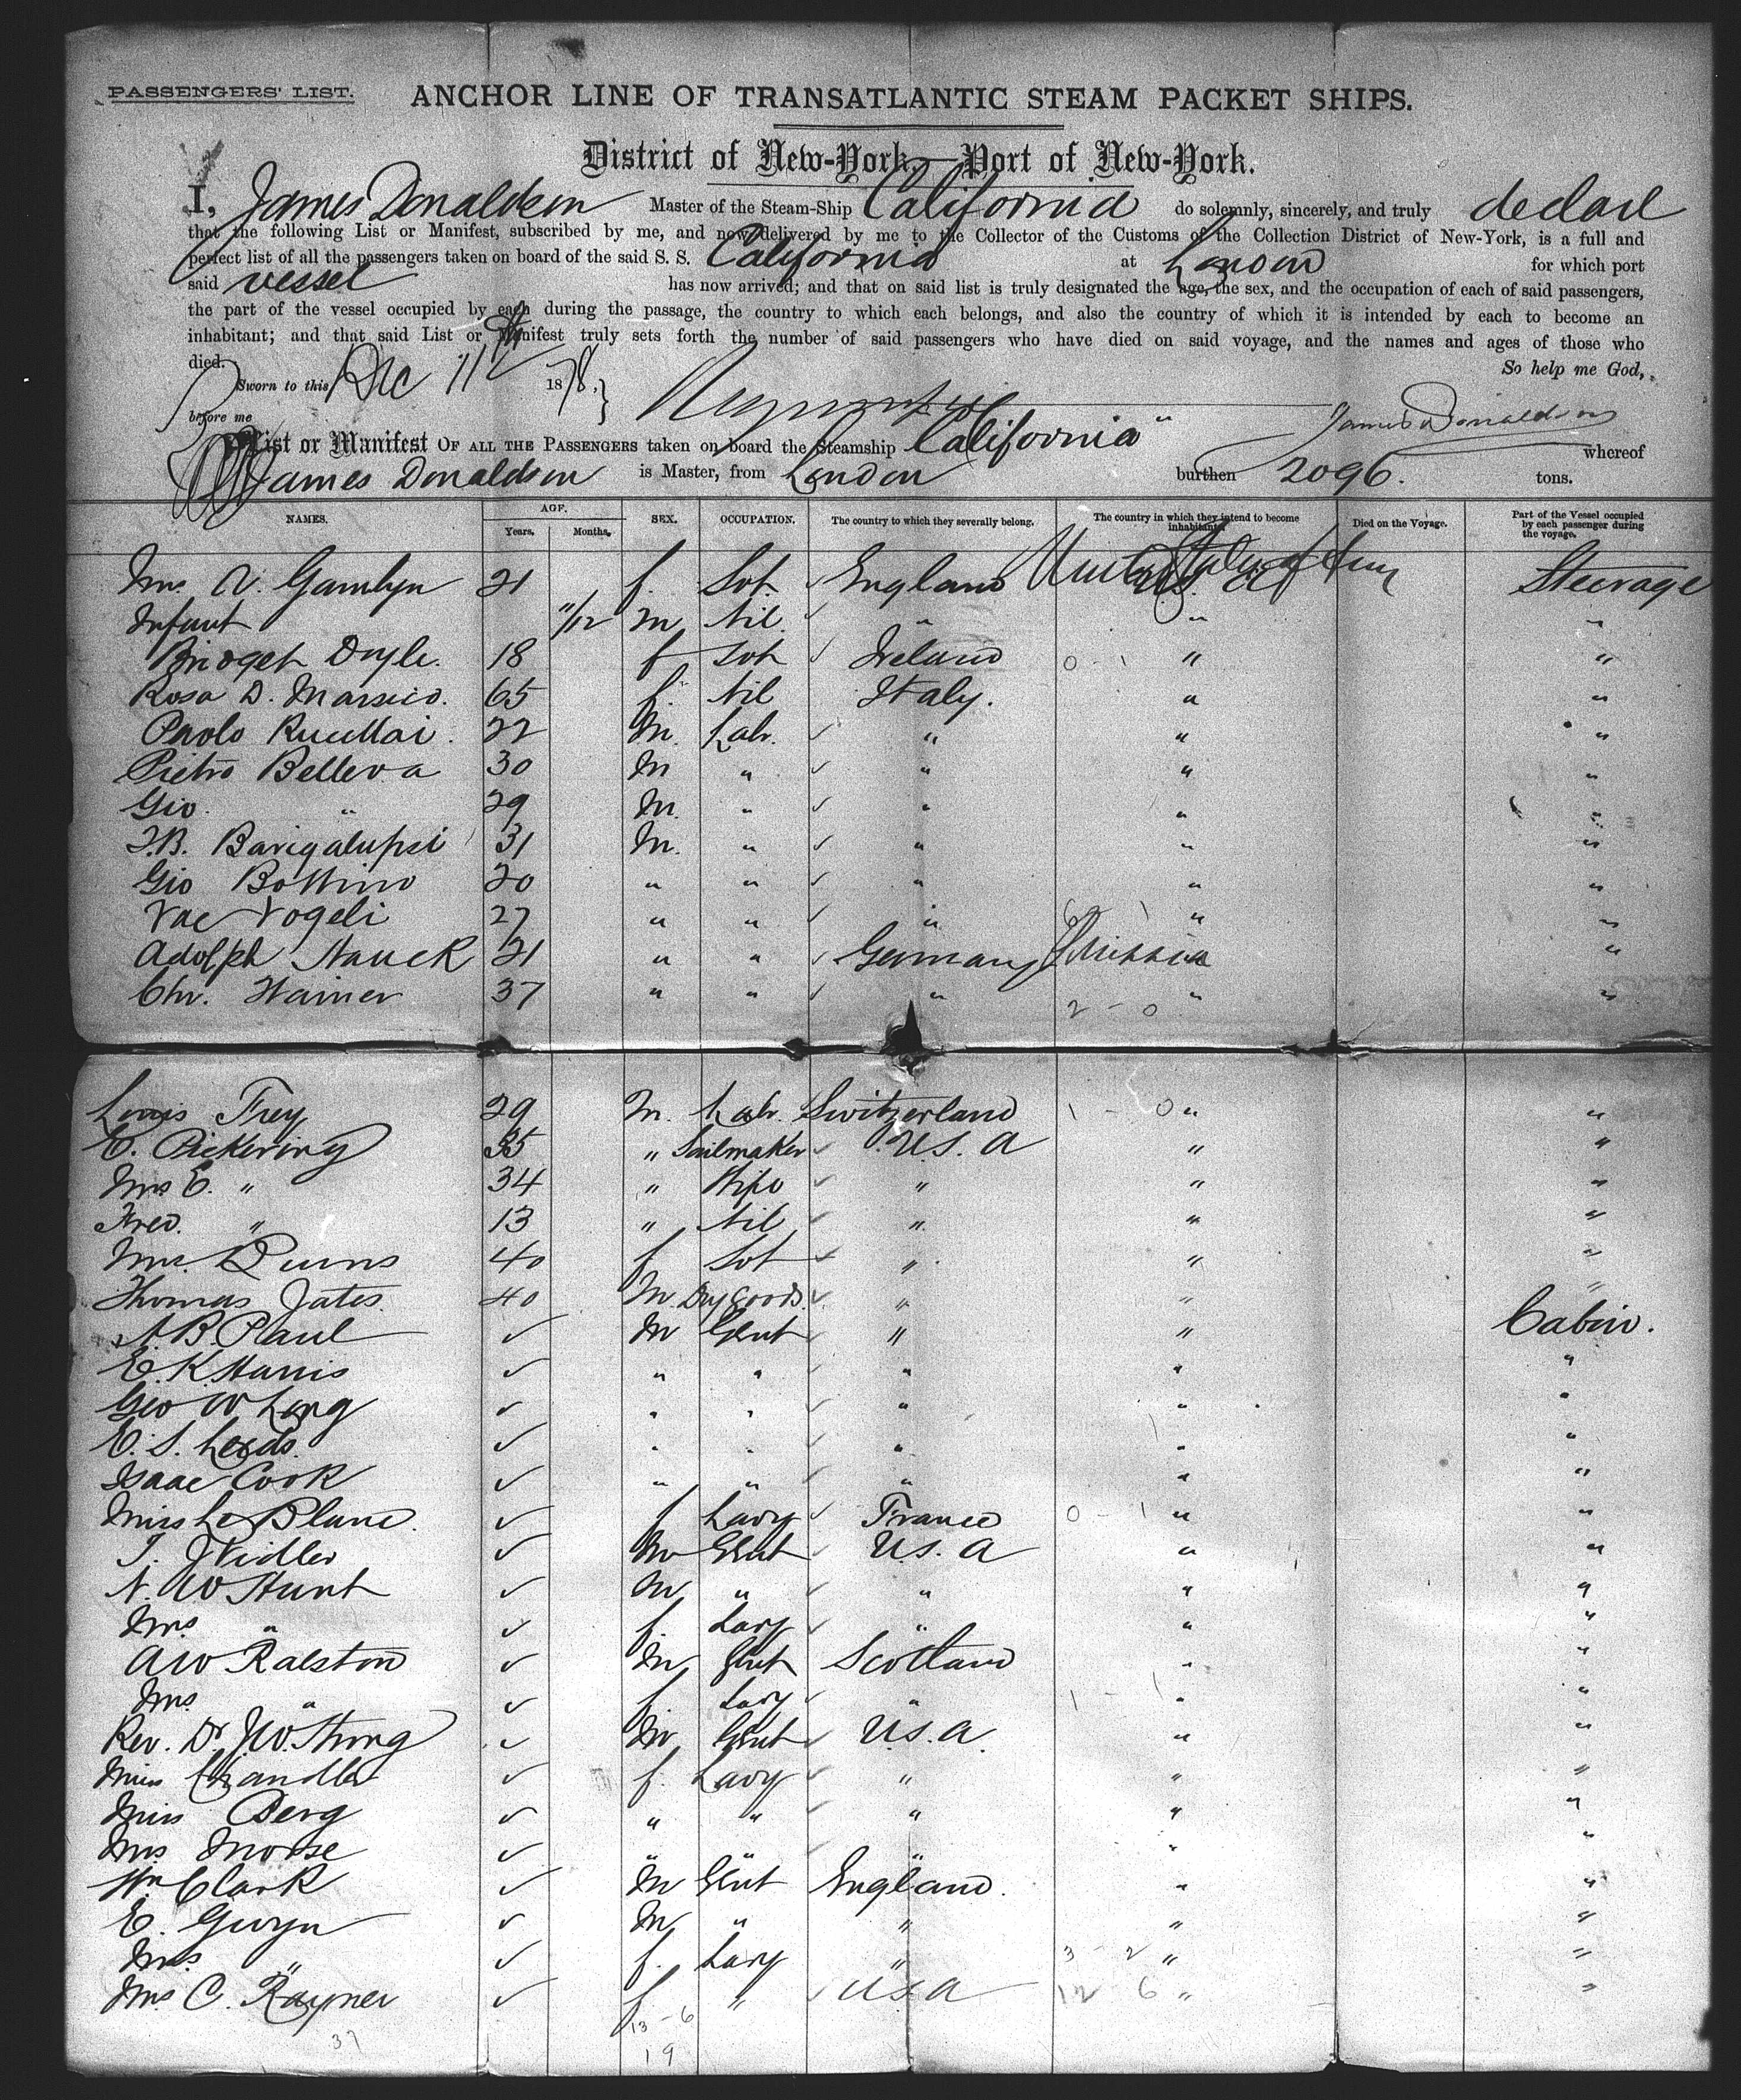 PASSENGERS' LIST. ANCHOR LINE OF TRANSATLANTIC STEAM PACKET SHIPS.
District of New-York.—Port of New-York.
I, James Donaldson Master of the Steam-Ship California do solemnly, sincerely, and truly declare
that the following List or Manifest, subscribed by me, and now delivered by me to the Collector of the Customs of the Collection District of New-York, is a full and
perfect list of all the passengers taken on board of the said S. S. California at London for which port
said vessel has now arrived; and that on said list is truly designated the age, the sex, and the occupation of each of said passengers,
the part of the vessel occupied by each during the passage, the country to which each belongs, and also the country of which it is intended by each to become an
inhabitant; and that said List or Manifest truly sets forth the number of said passengers who have died on said voyage, and the names and ages of those who
died. So help me God,
Sworn to this Dec 11th 1878.
before me James Donaldson
List or Manifest OF ALL THE PASSENGERS taken on board the Steamship California" whereof
James Donaldson is Master, from London burthen 2096. tons.
NAMES. AGE. Years. Months. SEX. OCCUPATION. The country to which they severally belong. The country in which they intend to become inhabitants. Died on the Voyage. Part of the Vessel occupied by each passenger during the voyage.
Mrs. A. Gamlyn 21 f. ✓ England Steerage
Infant 11/12 M Nil. " " "
Bridget Doyle. 18 f ✓ Ireland 0 - 1 " "
Rosa D. Marsico. 65 f. Nil Italy. " "
Paolo Rucellai. 22 M. Lab. ✓ " " "
Pietro Belleva 30 M " ✓ " " "
Gio. " 29 M. " ✓ " " "
Barigalupsi 31 M. " ✓ " " "
Gio Bottino 20 " " ✓ " " "
Vogeli 27 " " ✓ " 6 - 1 " "
Adolph Hauck 21 " " ✓ Germany "
Chr. Hainer 37 " " ✓ " 2 - 0 " "
Louis Frey 29 M. Lab. Switzerland 1 - 0 " "
E. Pickering 35 " Sailmaker ✓ U.S. A " "
Mrs E. " 34 " Wife ✓ " " "
Fred. " 13 " Nil ✓ " " "
Mrs. Burns 40 f ✓ " " "
Thomas Yates. 40 M. Dry Goods. ✓ " " "
A. B. Paul ✓ M Gent ✓ " " Cabin.
E. K. Harris ✓ " " ✓ " " "
Geo W Long ✓ " " ✓ " " "
E. S. Leeds. ✓ " " ✓ " " "
Isaac Cook ✓ " " ✓ " " "
Miss Le Blanc. ✓ f Lady ✓ France 0 - 1 " "
T. Vidler ✓ M Gent ✓ U.S. A " "
N. W Hunt ✓ M " ✓ " " "
Mrs. " ✓ f. Lady ✓ " " "
A W Ralston ✓ M Gent Scotland " "
Mrs. " ✓ f. Lady ✓ " 1 - 1 " "
Rev. Dr J. W. Strong ✓ M Gent ✓ U.S. A. " "
Miss Chandler ✓ f. Lady ✓ " " "
Miss Berg ✓ " " ✓ " " "
Mrs Morse ✓ " " " " "
Wm Clark ✓ M Gent England. " "
E. Gwyn ✓ M " " " "
Mrs. " ✓ f. Lady " 3 - 2 " "
Mrs C. Rayner ✓ f " ✓ U.S. A 12 6 " "
37 13 - 6
19